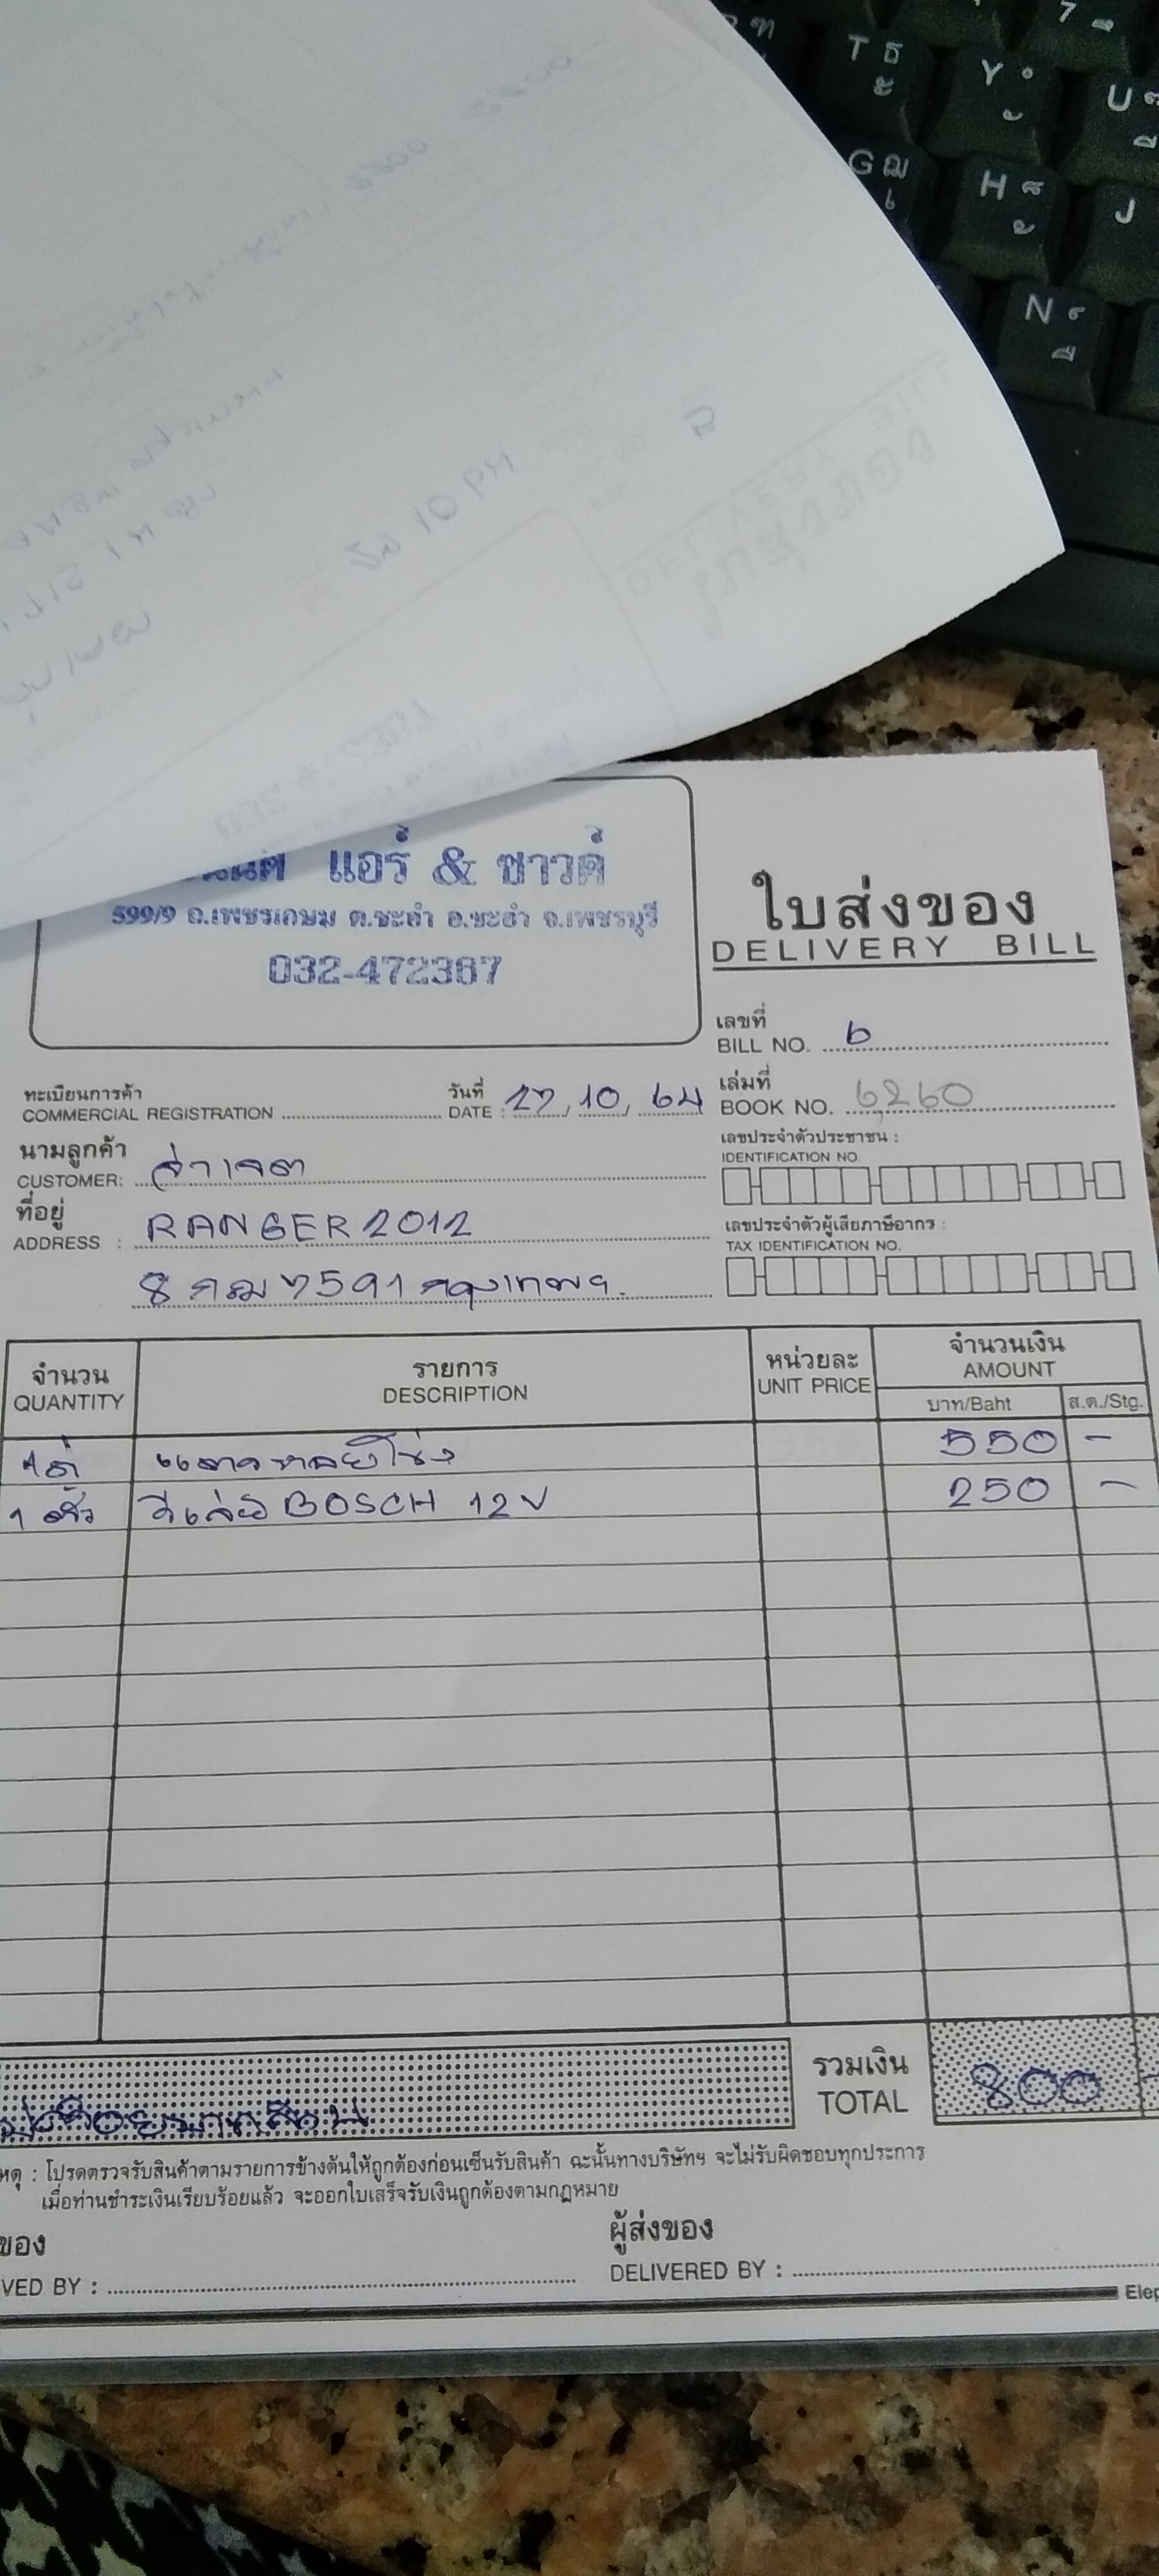 T ธ ะ
Y ํ ั
U
G ฌ เ
H ็ ้
J
N ์ ื
7
แอร์ & ซาวด์
599/9 ถ.เพชรเกษม ต.ชะอำ อ.ชะอำ จ.เพชรบุรี
032-472387
ใบส่งของ
DELIVERY BILL
เลขที่
BILL NO. 6
ทะเบียนการค้า
COMMERCIAL REGISTRATION
วันที่
DATE : 27, 10, 64
เล่มที่
BOOK NO. 6260
นามลูกค้า
CUSTOMER: จ่าเจต
เลขประจำตัวประชาชน :
IDENTIFICATION NO.
ที่อยู่
ADDRESS : RANGER 2012
เลขประจำตัวผู้เสียภาษีอากร :
TAX IDENTIFICATION NO.
8 กฒ 7591 กรุงเทพฯ.
จำนวน
QUANTITY
รายการ
DESCRIPTION
หน่วยละ
UNIT PRICE
จำนวนเงิน
AMOUNT
บาท/Baht
ส.ต./Stg.
550 -
1 ตัว รีเลย์ BOSCH 12V 250 -
รวมเงิน
TOTAL
800 -
หตุ : โปรดตรวจรับสินค้าตามรายการข้างต้นให้ถูกต้องก่อนเซ็นรับสินค้า ฉะนั้นทางบริษัทฯ จะไม่รับผิดชอบทุกประการ
เมื่อท่านชำระเงินเรียบร้อยแล้ว จะออกใบเสร็จรับเงินถูกต้องตามกฎหมาย
ของ
VED BY :
ผู้ส่งของ
DELIVERED BY :
Elep